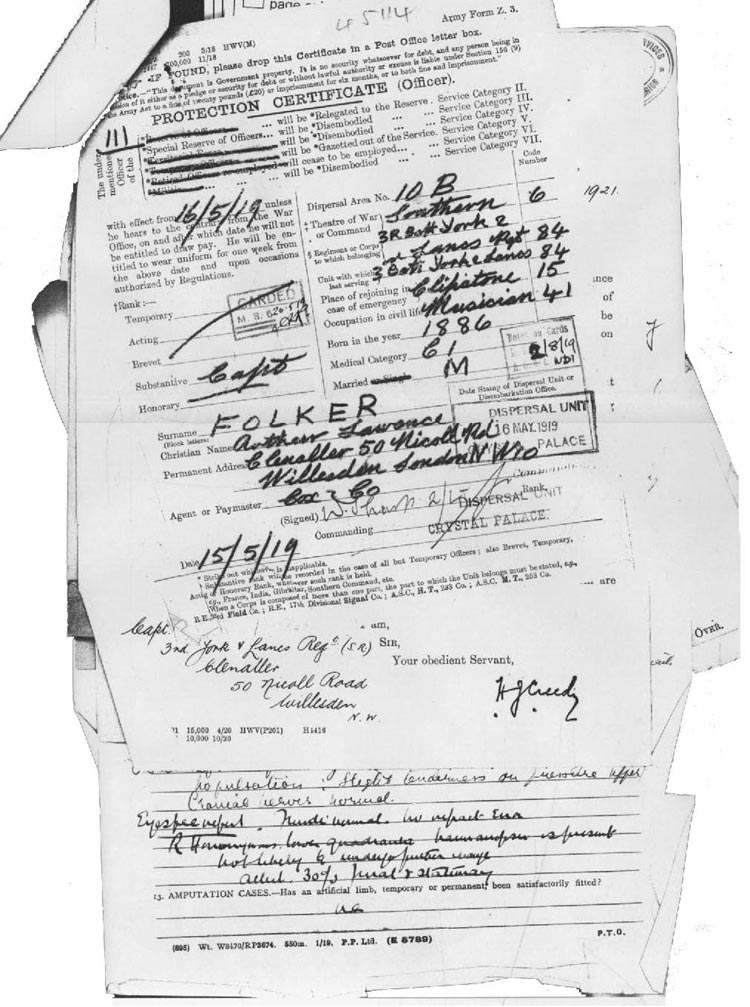 Page
45114
Army Form Z. 3.
300 3/18 HWV(M)
200,000 11/18
IF FOUND, please drop this Certificate in a Post Office letter box.
"This document is Government property. It is no security whatsoever for debt, and any person being
in possession of it either as a pledge or security for debt or without lawful authority or excuse is liable under Section 156 (9)
the Army Act to a fine of twenty pounds (£20) or imprisonment for six months, or to both fine and imprisonment."
PROTECTION CERTIFICATE (Officer).
The under-
mentioned
Officer
of the
III
*Reserve of Officers... will be *Relegated to the Reserve. Service Category II.
*Special Reserve of Officers... will be *Disembodied ... ... Service Category III.
*Territorial Force ... will be *Disembodied ... ... Service Category IV.
*Temporary Officers ... will be *Gazetted out of the Service. Service Category V.
*Retired Officers re-employed will cease to be employed... ... Service Category VI.
*Militia ... ... will be *Disembodied ... ... Service Category VII.
with effect from 16/5/19 unless
he hears to the contrary from the War
Office, on and after which date he will not
be entitled to draw pay. He will be en-
titled to wear uniform for one week from
the above date and upon occasions
authorized by Regulations.
†Rank:—
Temporary
Acting
Brevet
Substantive Capt
Honorary
CARDED
M. S. 6
Code
Number
Dispersal Area No. 10 B
‡Theatre of War
or Command Southern 6
§ Regiment or Corps
to which belonging 3R Batt York &
Lancs Regt 84
Unit with which
last serving 3 Batt York & Lancs 84
Place of rejoining in
case of emergency Clipstone 15
Occupation in civil life Musician 41
Born in the year 1886
Medical Category C1
Married or Single M
1921.
Noted on Cards
2/8/19
Date Stamp of Dispersal Unit or
Disembarkation Office.
DISPERSAL UNIT
16 MAY. 1919
PALACE
Surname FOLKER
(Block letters)
Christian Name Arthur Lawrance
Permanent Address Glenaller 50 Nicoll Rd
Willesden London NW10
Agent or Paymaster Cox & Co
(Signed) W. Sharp 2/Lt Rank.
Commanding
DISPERSAL UNIT
CRYSTAL PALACE.
Date 15/5/19
* Strike out whichever is inapplicable.
† Substantive Rank will be recorded in the case of all but Temporary Officers; also Brevet, Temporary,
Acting or Honorary Rank, whenever such rank is held.
‡ e.g., France, India, Gibraltar, Southern Command, etc.
§ When a Corps is composed of more than one part, the part to which the Unit belongs must be stated, e.g.,
R.E., 3rd Field Co.; R.E., 17th Divisional Signal Co.; A.S.C., H.T., 225 Co.; A.S.C., M.T., 255 Co.
ance
of
be
on
are
I am,
SIR,
Your obedient Servant,
H J Creedy
Capt.
3rd York & Lancs Regt (SR)
Glenaller
50 Nicoll Road
Willesden
N. W.
15,000 4/20 HWV(P201) H1416
10,000 10/20
OVER.
no pulsation. Slight tenderness on pressure upper
Cranial nerves normal.
Eye spec report. Fundi normal. No
R Homonymous lower quadrantic hemianopsia is present
not likely to undergo further change
30% final & stationary
13. AMPUTATION CASES.—Has an artificial limb, temporary or permanent, been satisfactorily fitted?
na
(895) Wt. W8470/RP3674. 550m. 1/19. P.P. Ltd. (E 5789)
P.T.O.